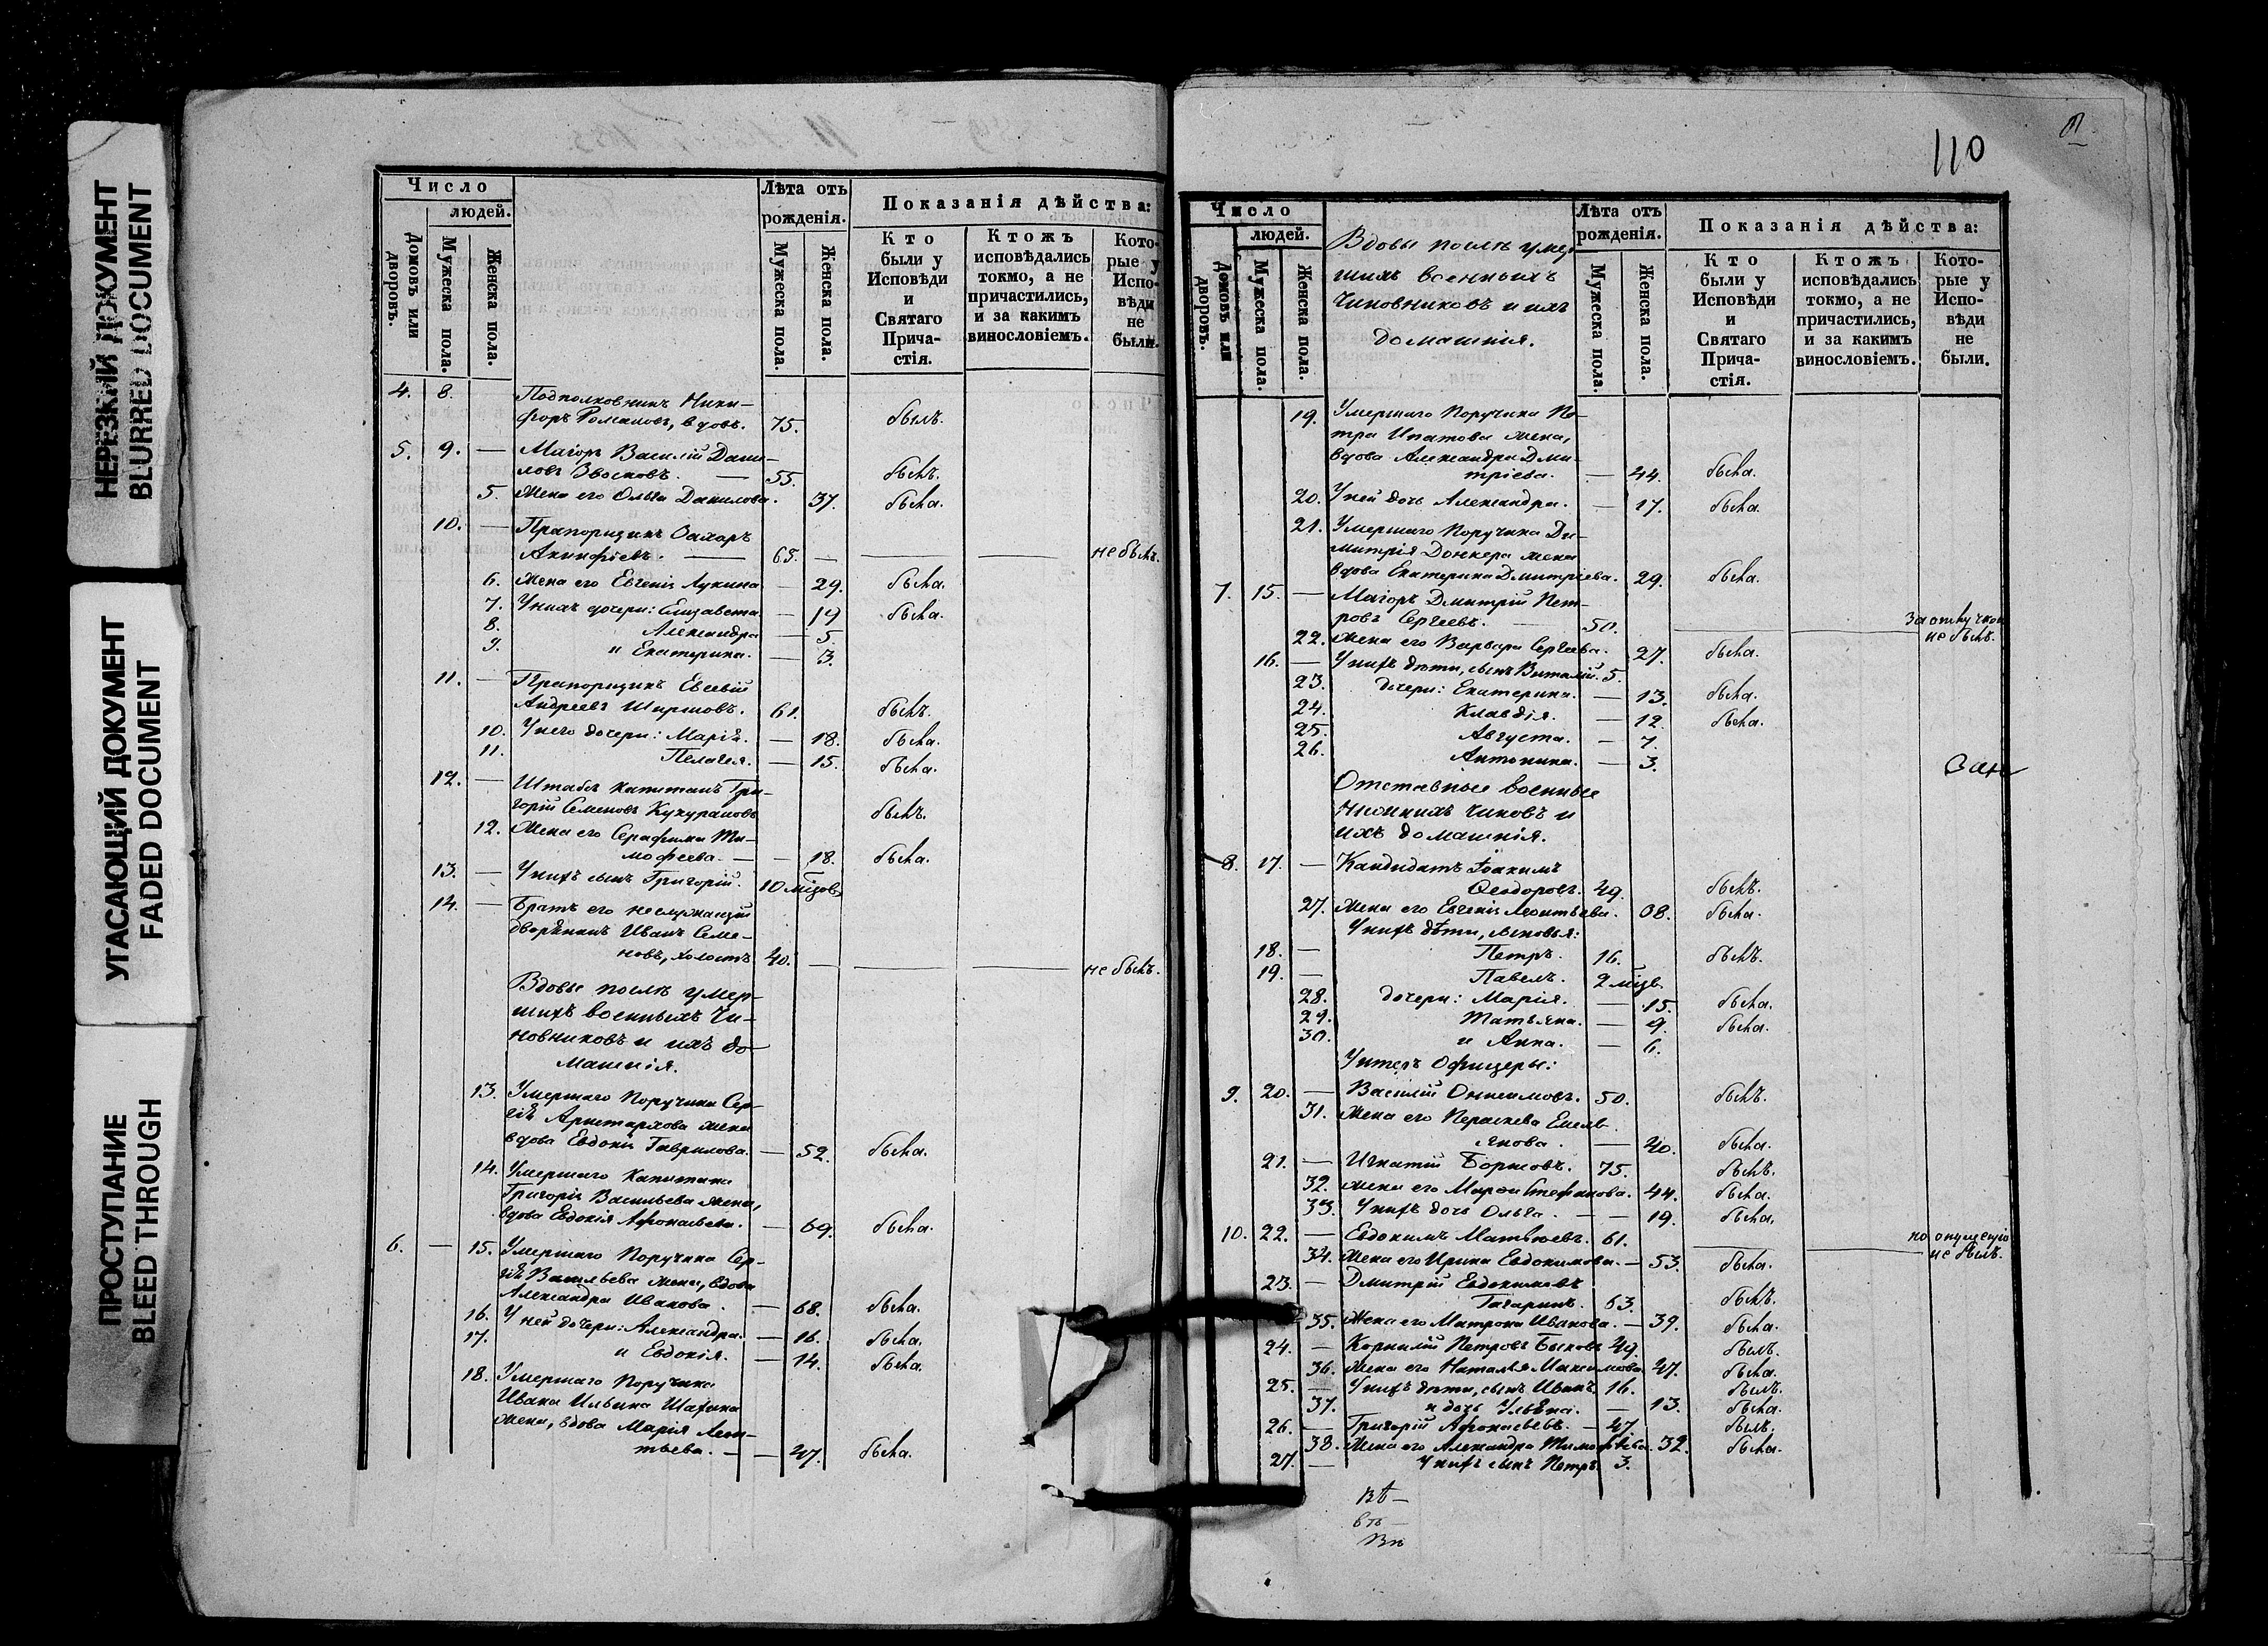 НЕРЕЗКИЙ ДОКУМЕНТ
BLURRED DOCUMENT
УГАСАЮЩИЙ ДОКУМЕНТ
FADED DOCUMENT
ПРОСТУПАНИЕ
BLEED THROUGH
Число
людей.
Домовъ или дворовъ.
Мужеска пола.
Женска пола.
Лѣта отъ рожденія.
Мужеска пола.
Женска пола.
Показанія дѣйства:
Кто были у Исповѣди и Святаго Прича-стія.
Ктожъ исповѣдались токмо, а не причастились, и за какимъ винословіемъ.
Кото-рые у Испо-вѣди не были.
4. 8. Подполковникъ Ники-
форъ Романовъ, вдовъ. 75. былъ.
5. 9. — Маіоръ Василій Дани-
ловъ Звосковъ. — 55. былъ.
5. Жена его Ольга Данилова. 37. была.
10. — Прапорщикъ Захаръ
Акинфіевъ. — 65. — не былъ.
6. Жена его Евгенія Лукина — 29. была.
7. У нихъ дочери: Елизавета — 19 была.
8. Александра — 5.
9. и Екатерина. — 3.
11. — Прапорщикъ Евсевій
Андреевъ Ширшовъ. 61. былъ.
10. У него дочери: Марія. — 18. была.
11. Пелагея. — 15. была.
12. — Штабсъ Капитанъ Гри-
горій Семеновъ Кукурановъ былъ.
12. Жена его Серафима Ти-
мофеева. — — 18. была.
13. — У нихъ сынъ Григорій. 10 мѣсов
14. — Братъ его неслужащій
дворянинъ Иванъ Семе-
новъ, холостъ 40. — не былъ.
Вдовы послѣ умер-
шихъ военныхъ Чи-
новниковъ и ихъ до
машнія.
13. Умершаго Поручика Сер-
гія Аристархова жена
вдова Евдокія Гаврилова. — 52. была.
14. Умершаго Капитана
Григорія Васильева жена,
вдова Евдокія Афонасьева. — 69. была.
6. — 15. Умершаго Поручика Сер-
гія Васильева жена, вдова
Александра Иванова. — 68. была.
16. У ней дочери: Александра. — 16. была.
17. и Евдокія. — 14. была.
18. Умершаго Поручика
Ивана Ильина Шахина
жена, вдова Марія Леон-
тьева. — — 47. была.
110
Число
людей.
Домовъ или дворовъ.
Мужеска пола.
Женска пола.
Вдовы послѣ умер
шихъ военныхъ
Чиновниковъ и ихъ
домашнія.
Лѣта отъ рожденія.
Мужеска пола.
Женска пола.
Показанія дѣйства:
Кто были у Исповѣди и Святаго Прича-стія.
Ктожъ исповѣдались токмо, а не причастились, и за какимъ винословіемъ.
Кото-рые у Испо-вѣди не были.
19. Умершаго Поручика Пе-
тра Ипатова жена,
вдова Александра Дми-
тріева. — 44. была.
20. У ней дочь Александра. — 17. была.
21. Умершаго Поручика Ди-
митрія Донкера жена
вдова Екатерина Дмитріева. 29. была.
7. 15. — Маіоръ Дмитрій Пет-
ровъ Сергеевъ. — 50. За отлучкою
не былъ.
22. Жена его Варвара Сергеева. 27. была.
16. — У нихъ дѣти, сынъ Виталій. 5.
23. дочери: Екатерина. — 13. была.
24. Клавдія. — 12. была.
25. Августа. — 7.
26. Антонина. — 3.
Отставные военные
нижнихъ чиновъ и
ихъ домашнія.
8. 17. — Кандидатъ Іоакимъ
Ѳеодоровъ. 49. былъ.
27. Жена его Евгенія Леонтьева. 08. была.
У нихъ дѣти, сыновья:
18. — Петръ. 16. былъ.
19. — Павелъ. 2 мѣсв
28. дочери: Марія. — 15. была.
29. Татьяна. — 9. была.
30. и Анна. — 6.
Унтеръ Офицеры:
9. 20. — Василій Онисимовъ. 50. былъ.
31. Жена его Перасковa Емель
янова. — 40. была.
21. — Игнатій Борисовъ. 75. былъ.
32. Жена его Марфа Стефанова. 44. была.
33. У нихъ дочь Ольга. — — 19. была.
10. 22. — Евдокимъ Матвѣевъ. 61. по опущенію
не былъ.
34. Жена его Ирина Евдокимова. — 53. была.
23. — Дмитрій Евдокимовъ
Гагаринъ. 63. былъ.
35. Жена его Матрона Иванова. — 39. была.
24. — Корнилій Петровъ Быковъ 49. былъ.
36. Жена его Наталья Максимова 47. была.
25. — У нихъ дѣти, сынъ Иванъ 16. былъ.
37. и дочь Ульяна. — 13. была.
26. — Григорій Афонасьевъ. — 47. былъ.
38. Жена его Александра Тимофѣева. 32. была.
27. — У нихъ сынъ Петръ. 3.
Вѣ —